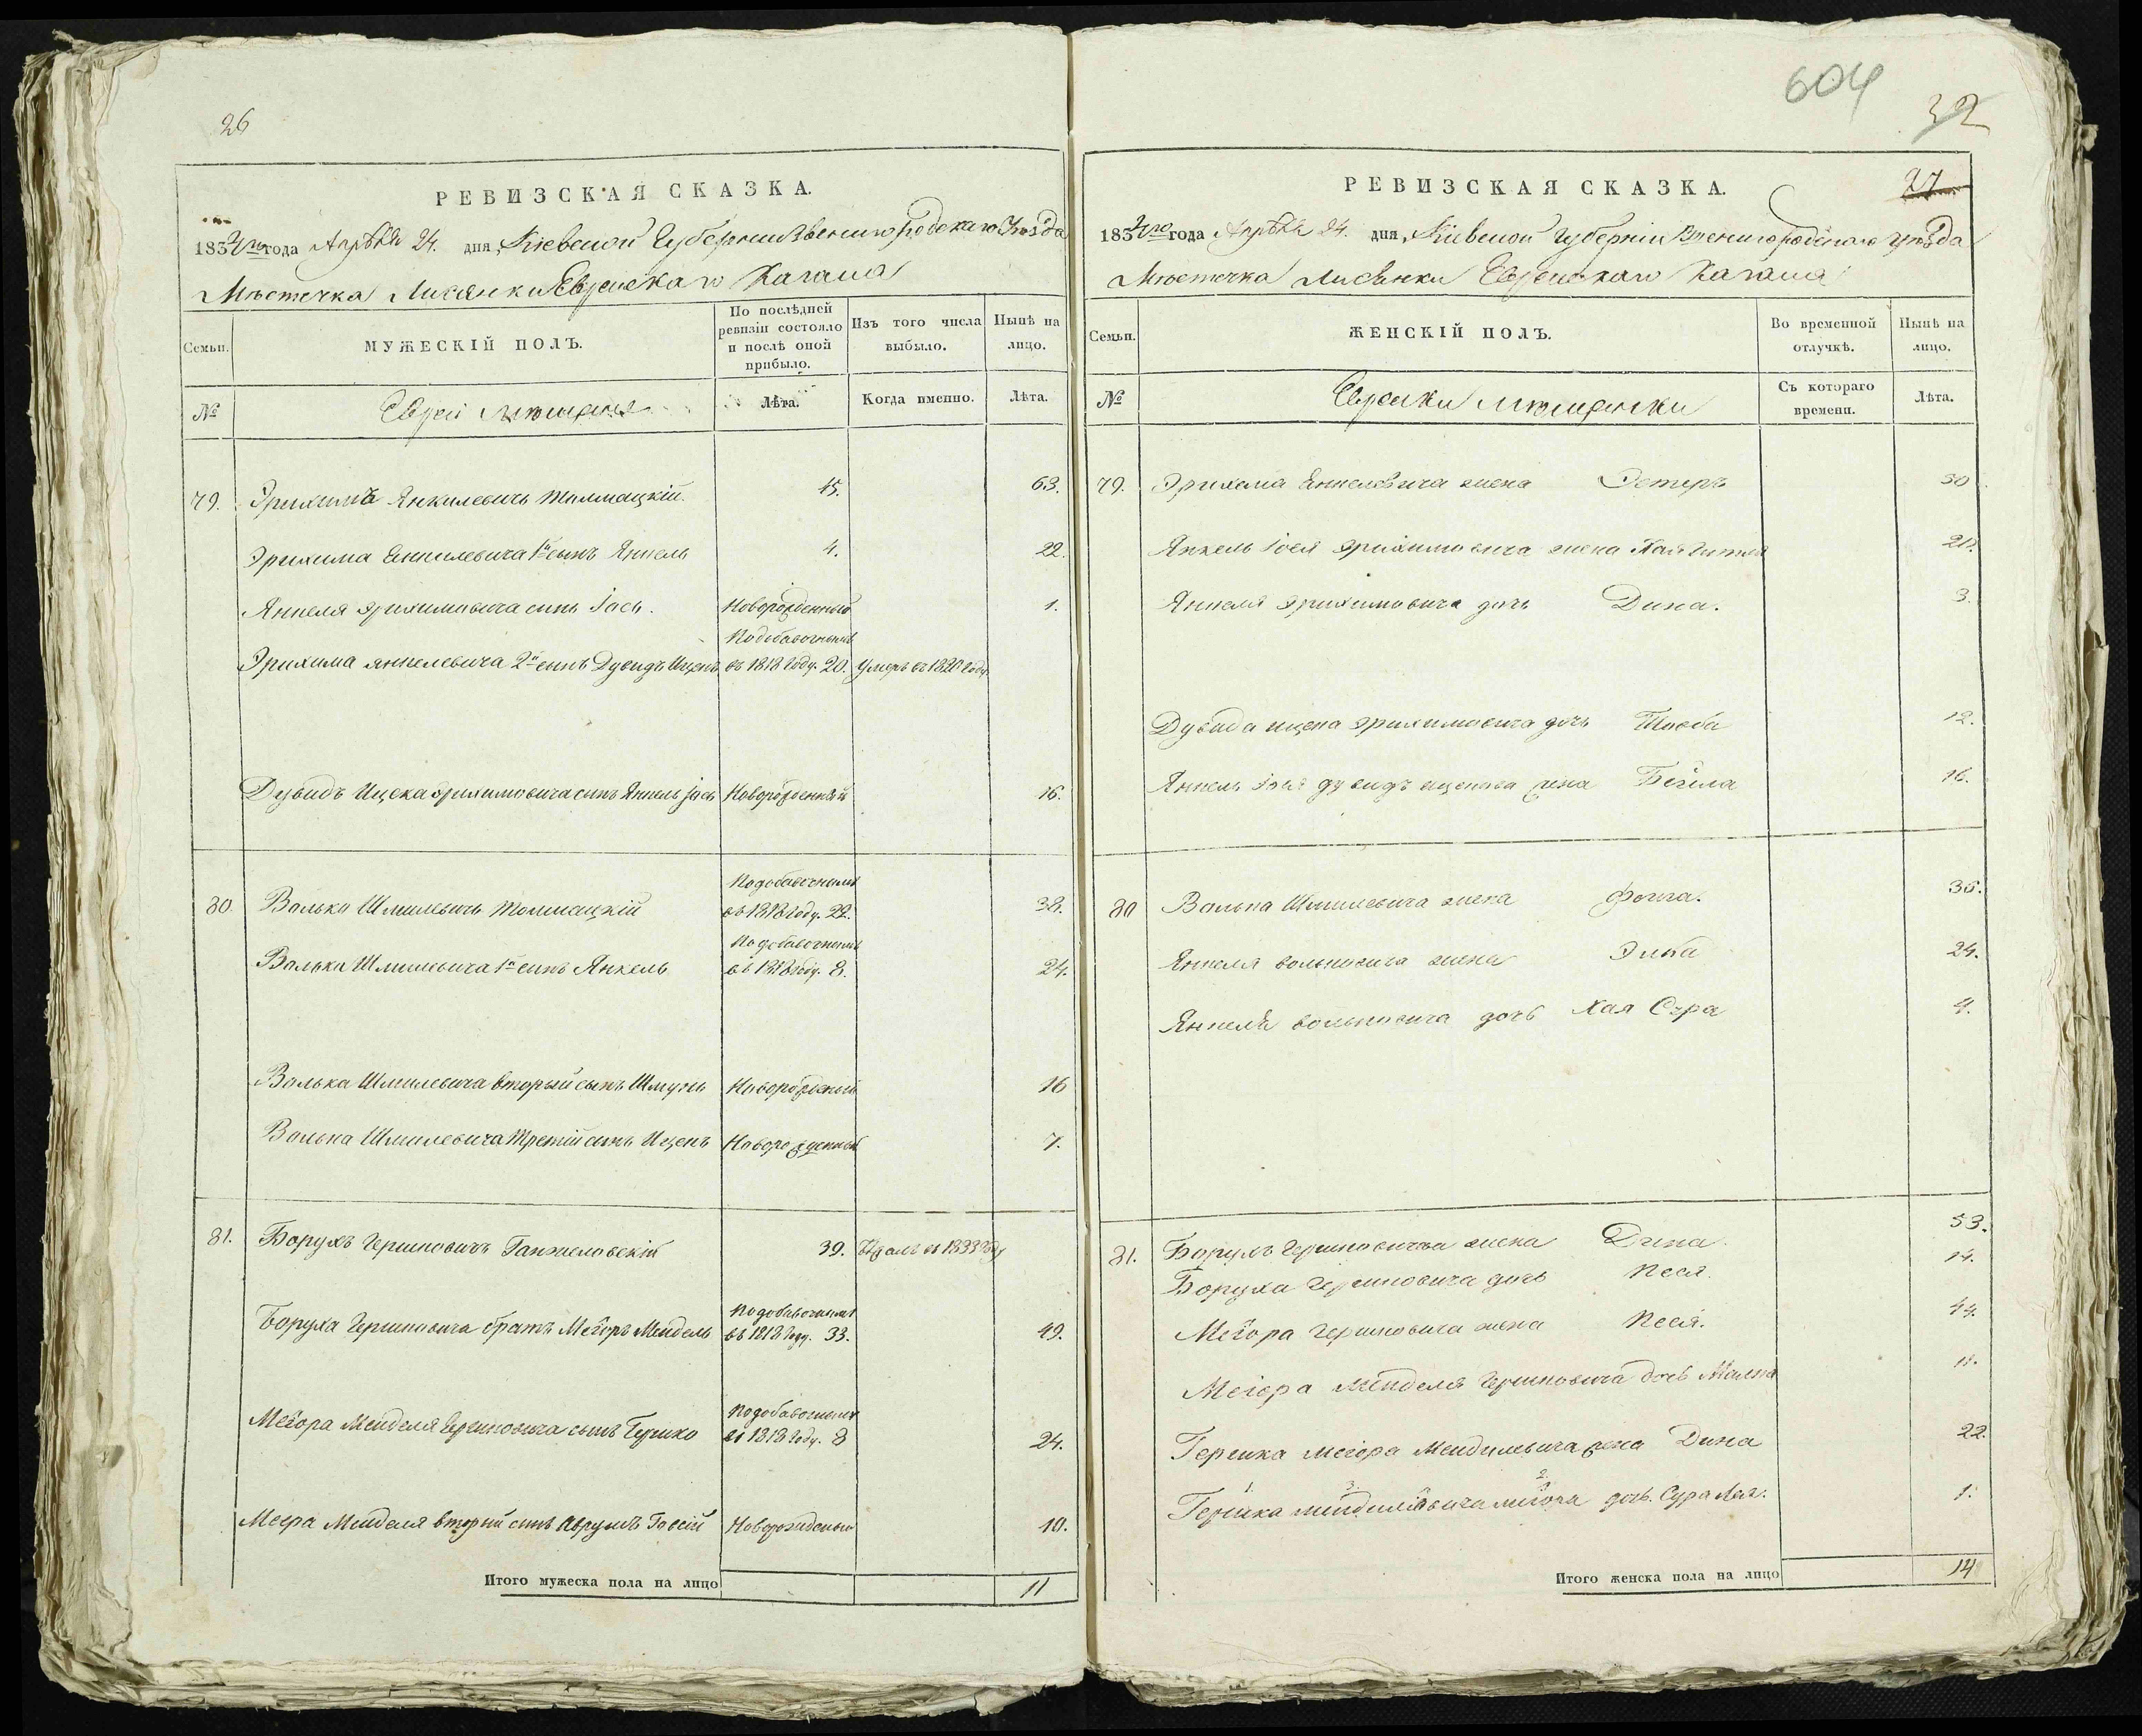 26
РЕВИЗСКАЯ СКАЗКА.
1834го года Апрѣля 24. дня, Кіевской Губерніи Звенигородскаго Уѣзда
Мѣстечка Лисянки Еврейскаго Кагала
Семьи.
МУЖЕСКІЙ ПОЛЪ.
По послѣдней ревизіи состояло и послѣ оной прибыло.
Изъ того числа выбыло.
Нынѣ на лицо.
№
Евреи мѣщане
Лѣта.
Когда именно.
Лѣта.
79. Эрихимъ Янкилевичъ Толмацкій 45. 63.
Эрихима Янкилевича 1й сынъ Янкель 4. 22.
Янкеля Эрихимовича сынъ Іось. Новорожденный 1.
Подобавочнымъ
Эрихима Янкелевича 2й сынъ Дувидъ Ицекъ въ 1818 году. 20. Умеръ въ 1820 году.
Дувидъ Ицека Эрихимовича сынъ Янкель Іось Новорожденный 16.
Подобавочнымъ
80 Волько Шмилевичъ Толмацкій въ 1818 году. 22. 38.
Подобавочнымъ
Волька Шмилевича 1й сынъ Янкель въ 1818 году. 8. 24.
Волька Шмилевича вторый сынъ Шмуль Новорожденный 16
Волька Шмилевича Третій сынъ Ицекъ Новорожденный 7.
81. Борухъ Гершковичъ 39. въ 1833 году
Подобавочнымъ
Боруха Гершковича братъ Меіоръ Мендель въ 1818 году. 33. 49.
Подобавочнымъ
Меіора Менделя Гершковича сынъ Гершко въ 1818 году. 8 24.
Меера Менделя вторый сынъ Аврумъ Новорожденный 10.
Итого мужеска пола на лицо 11
604
32
27
РЕВИЗСКАЯ СКАЗКА.
1834го года Апрѣля 24. дня, Кіевской Губерніи Звенигородскаго уѣзда
Мѣстечка Лисянки Еврейскаго Кагала
Семьи.
ЖЕНСКІЙ ПОЛЪ.
Во временной отлучкѣ.
Нынѣ на лицо.
№
Еврейки мѣщанки
Съ котораго времени.
Лѣта.
79. Эрихима Янкелевича жена Эстеръ 50
Янкель Іося Эрихимовича жена Хая 21.
Янкеля Эрихимовича дочь Дина. 3.
Дувида Ицека Эрихимовича дочь 12.
Янкель Іося Дувидъ Ицекова жена Бейла 16.
80 Волька Шмилевича жена 36.
Янкеля Вольковича жена Элька 24.
Янкеля Вольковича дочь Хая Сура 4.
81. Борухъ Гершковича жена Дина 53.
Боруха Гершковича дочь Песя. 14.
Меіора Гершковича жена Песя. 44.
Меіора Менделя Гершковича дочь Малка 11.
Гершка Меіора Мендилевича жена Дина 22.
1 3 2
Гершка Мендилевича Меіора дочь Сура Лея. 1.
Итого женска пола на лицо 14